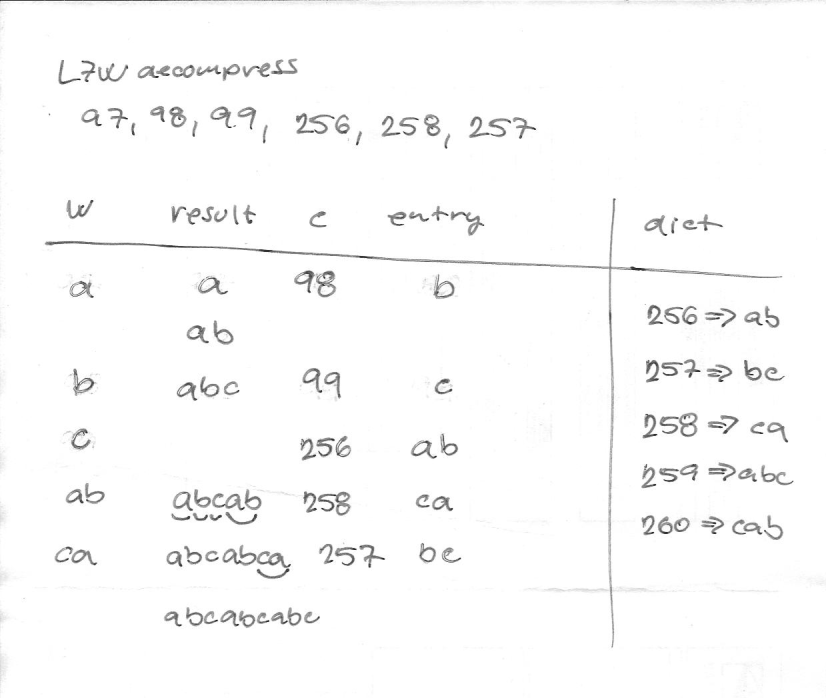 LZW decompress
97, 98, 99, 256, 258, 257
w result c entry dict
a a 98 b
256 => ab
ab
257 => bc
b abc 99 c
258 => ca
c 256 ab
259 => abc
ab abcab 258 ca
260 => cab
ca abcabca 257 bc
abcabcabc